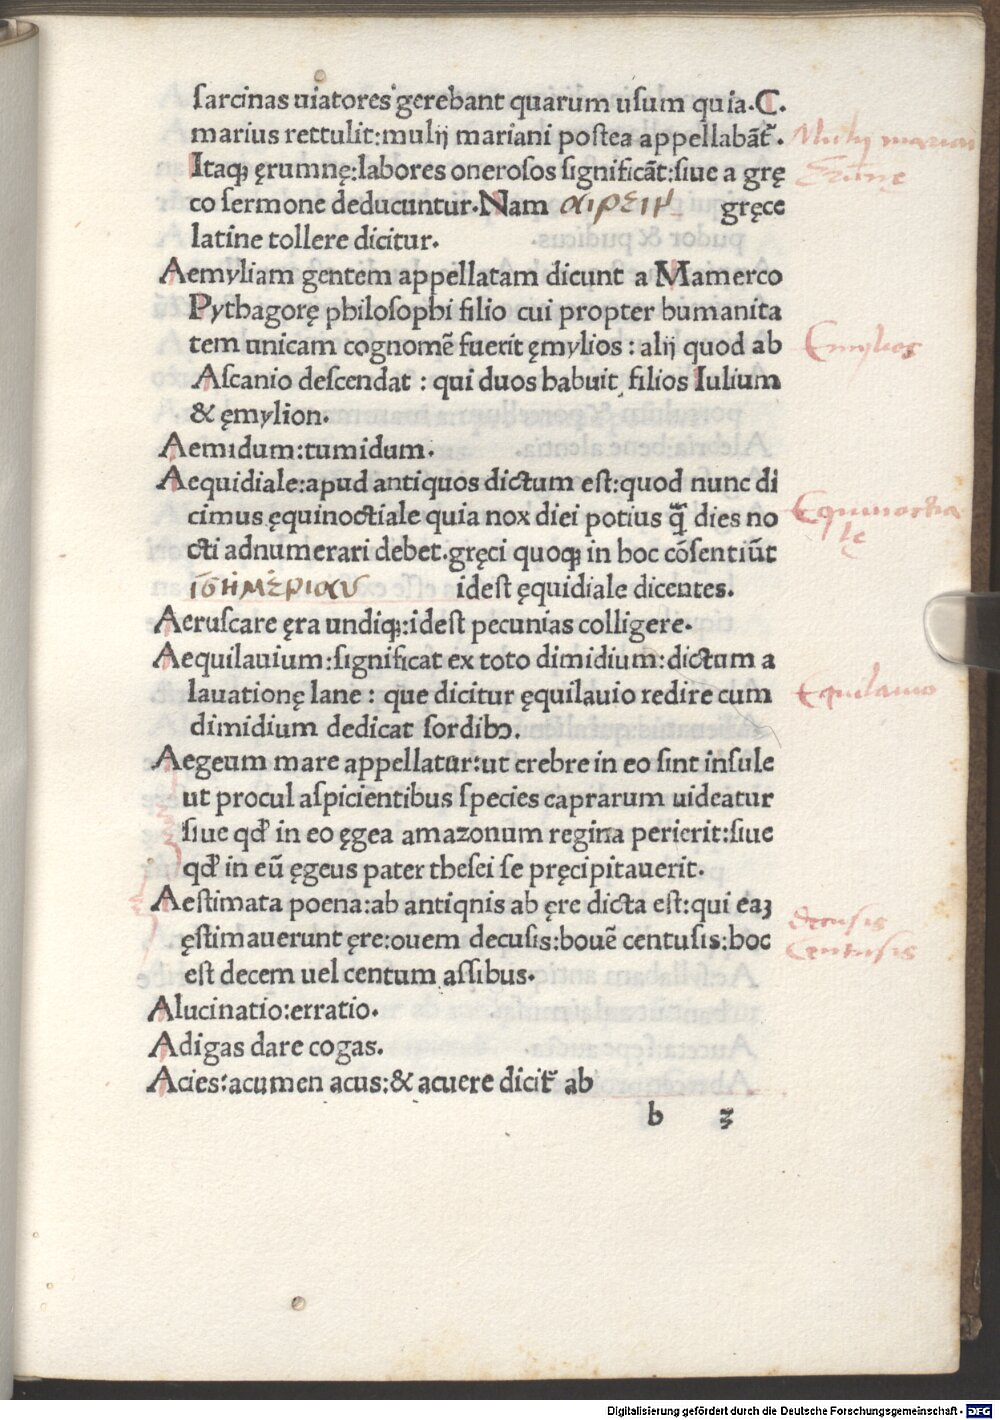 sarcinas uiatores gerebant quarum usum quia.C.
marius rettulit:mulij mariani postea appellabãt᷑.
Itaqꝫ ęrumnę:labores onerosos significãt:siue a grę
co sermone deducuntur.Nam αιρειν gręce
latine tollere dicitur.
Aemyliam gentem appellatam dicunt a Mamerco
Pythagorę philosophi filio cui propter humanita
tem unicam cognomẽ fuerit ęmylios : alij quod ab
Ascanio descendat : qui duos habuit filios Iulium
& ęmylion.
Aemidum:tumidum.
Aequidiale:apud antiquos dictum est:quod nunc di
cimus ęquinoctiale quia nox diei potius q̃ dies no
cti adnumerari debet.gręci quoqꝫ in hoc cõsentiũt
ἰσημεριαν idest ęquidiale dicentes.
Aeruscare ęra undiqꝫ:idest pecunias colligere.
Aequilauium:significat ex toto dimidium:dictum a
lauationę lane : que dicitur ęquilauio redire cum
dimidium dedicat sordibꝰ.
Aegeum mare appellatur:ut crebre in eo sint insule
ut procul aspicientibus species caprarum uideatur
siue qđ in eo ęgea amazonum regina perierit:siue
qđ in eũ ęgeus pater thesei se pręcipitauerit.
Aestimata poena:ab antiqnis ab ęre dicta est:qui eaꝫ
ęstimauerunt ęre:ouem decusis:bouẽ centusis:hoc
est decem uel centum assibus.
Alucinatio:erratio.
Adigas dare cogas.
Acies:acumen acus:& acuere dicit᷑ ab
b 3
Mulij mariani
Erũnę
Emylios
Equinoctia
lę
Equilauio
decusis
Centusis
Digitalisierung gefördert durch die Deutsche Forschungsgemeinschaft - DFG